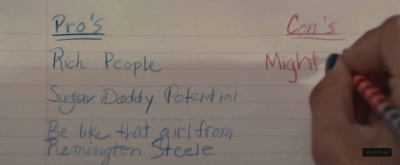 Pro's
Con's
Rich People
Might
Sugar Daddy Potential
Be like that girl from
Remington Steele